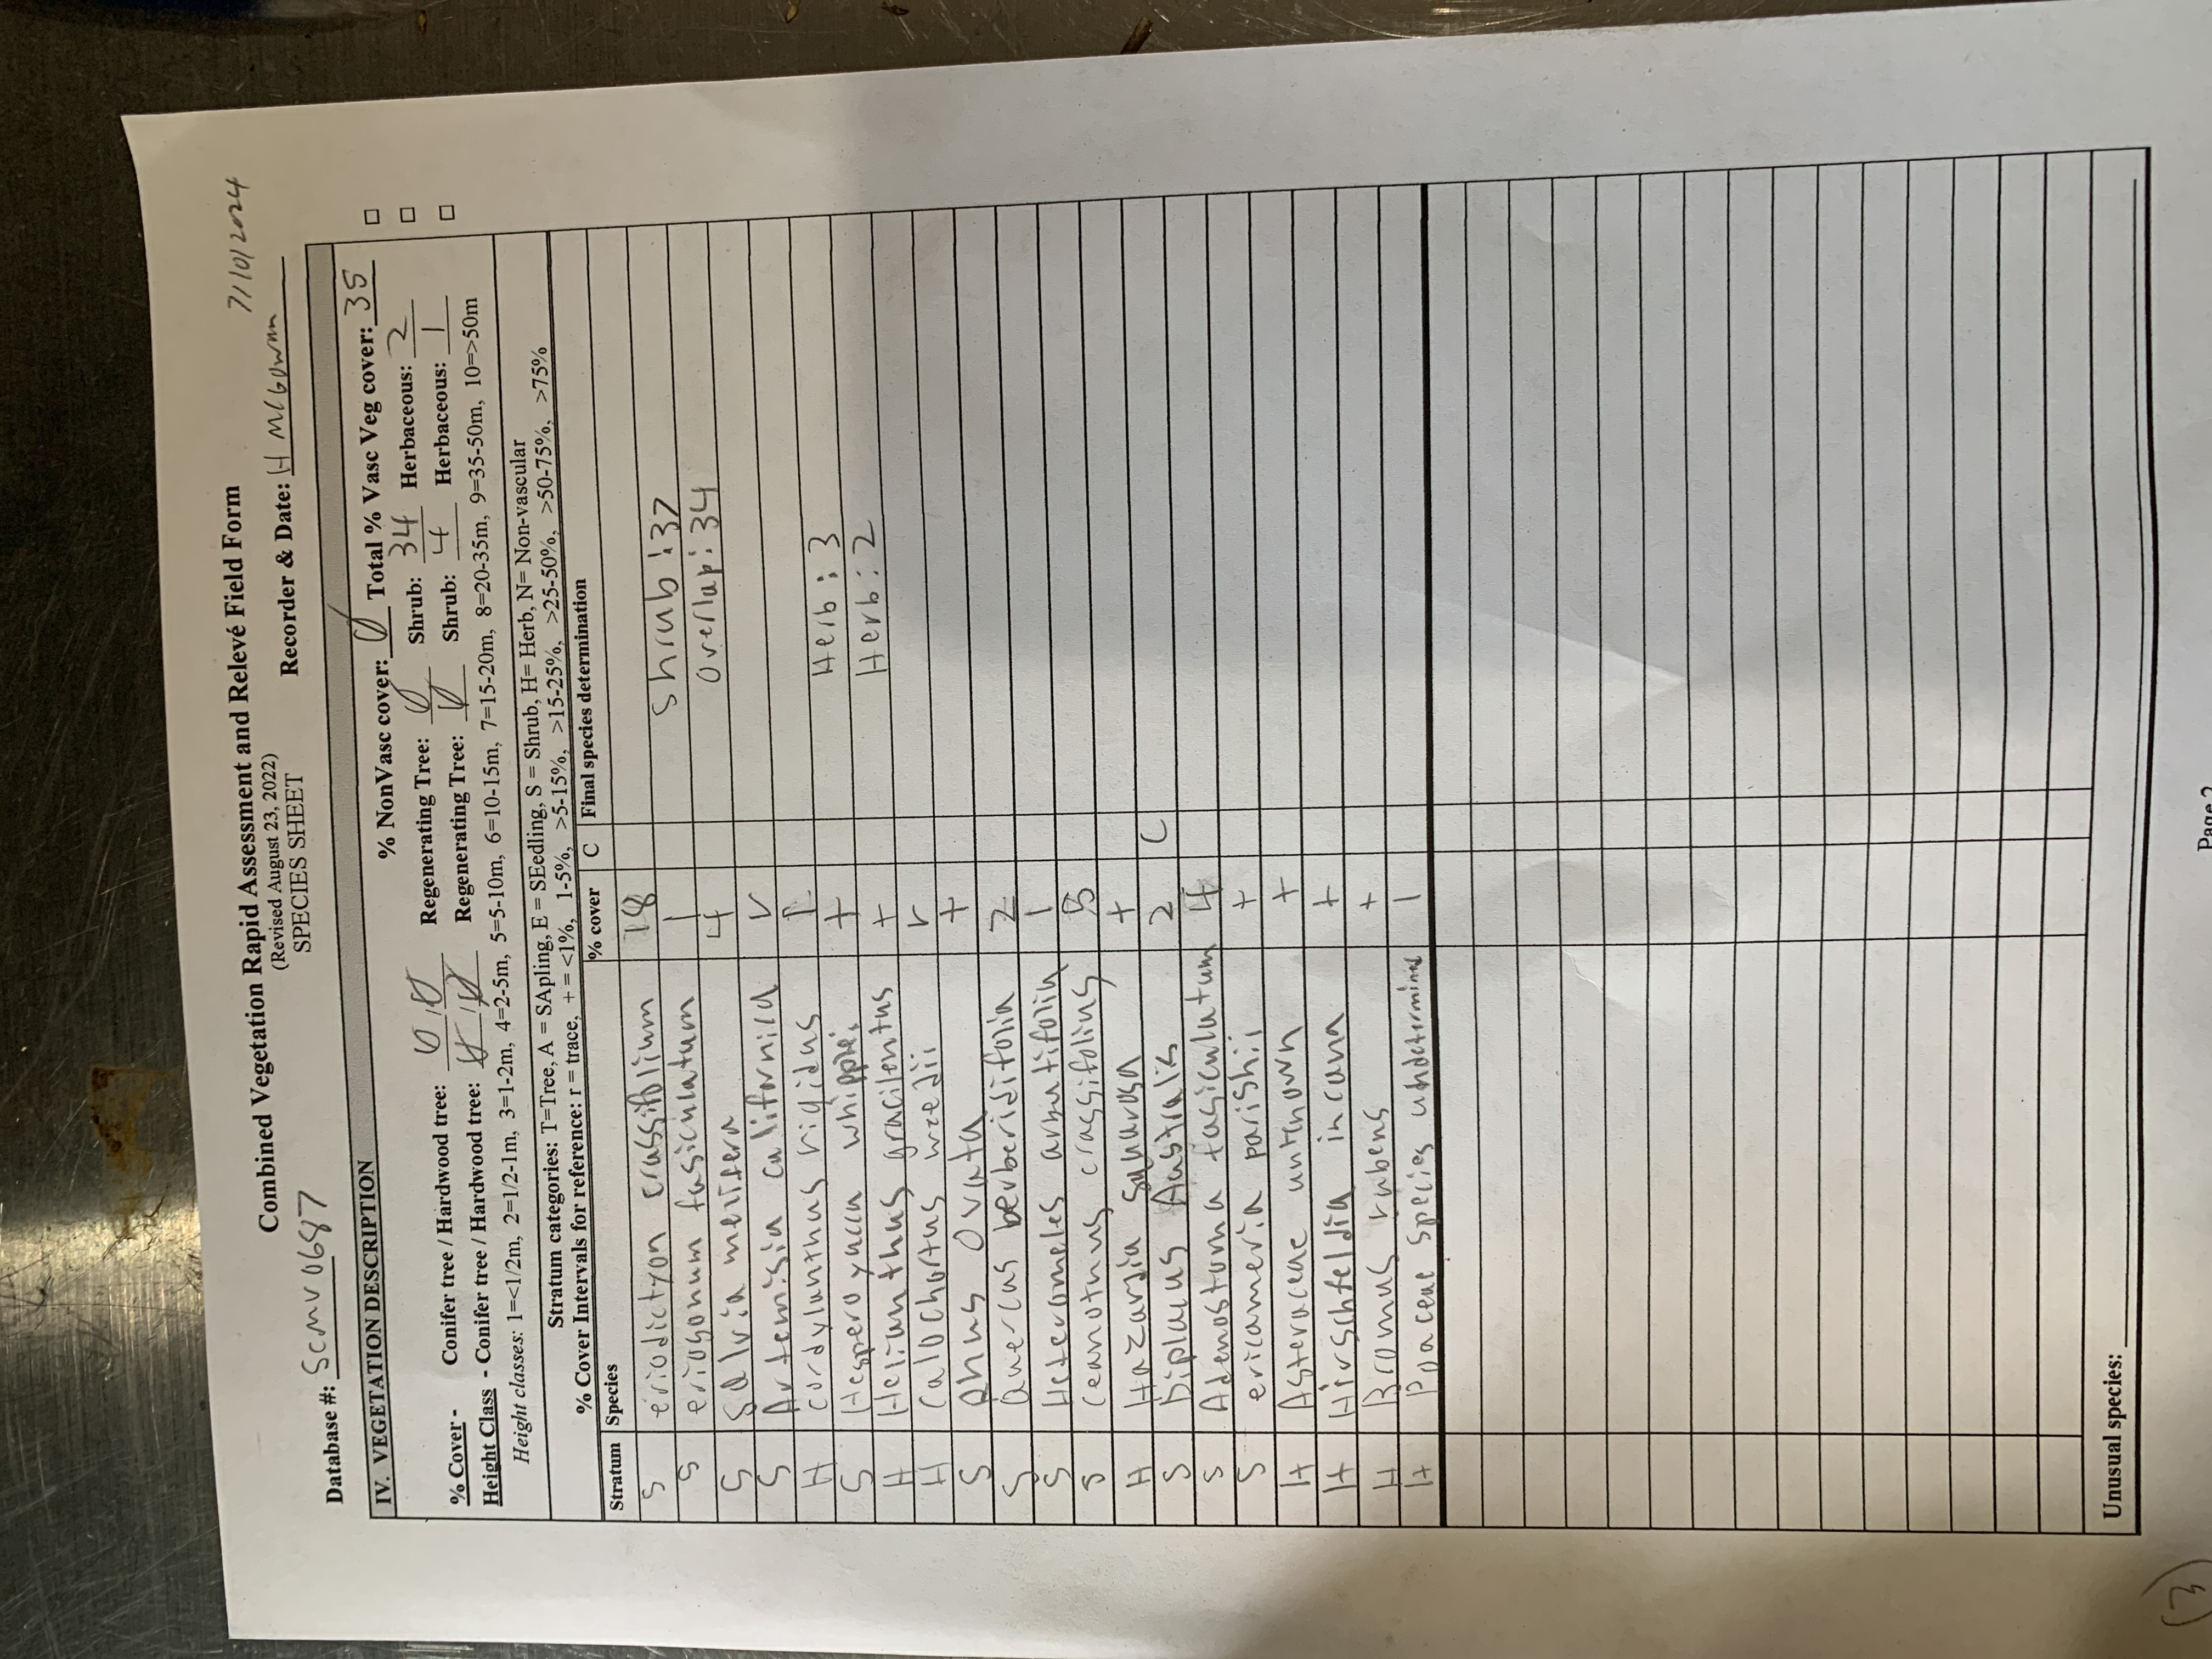 Combined Vegetation Rapid Assessment and Relevé Field Form
7/10/2024
(Revised August 23, 2022)
SPECIES SHEET
Database #: SCMV0687 Recorder & Date: H McGowan
IV. VEGETATION DESCRIPTION
% NonVasc cover: 0 Total % Vasc Veg cover: 35
% Cover - Conifer tree / Hardwood tree: 0 / 0 Regenerating Tree: 0 Shrub: 34 Herbaceous: 2
Height Class - Conifer tree / Hardwood tree: 0 / 0 Regenerating Tree: 0 Shrub: 4 Herbaceous: 1
Height classes: 1=<1/2m, 2=1/2-1m, 3=1-2m, 4=2-5m, 5=5-10m, 6=10-15m, 7=15-20m, 8=20-35m, 9=35-50m, 10=>50m
Stratum categories: T=Tree, A = SApling, E = SEedling, S = Shrub, H= Herb, N= Non-vascular
% Cover Intervals for reference: r = trace, + = <1%, 1-5%, >5-15%, >15-25%, >25-50%, >50-75%, >75%
Stratum Species % cover C Final species determination
S eriodictyon crassifolium 18
S eriogonum fasiculatum 1 Shrub: 37
S Salvia mellifera 4 Overlap: 34
S Artemisia californica r
H cordylanthus rigidus
S Hesperoyucca whipplei + Herb: 3
H Helianthus gracilentus + Herb: 2
H Calochortus weedii r
S Rhus Ovata +
S Quercus berberidifolia 2
S Heteromeles arbutifolia 1
S ceanothus crassifolius 5
H Hazardia squarosa +
S Diplacus Australis 2 C
S Adenostoma fasiculatum 4
S ericameria parishii +
H Asteraceae unknown +
H Hirschfeldia incana +
H Bromus rubens +
H Poaceae species undetermined 1
Unusual species:
Page 2
3